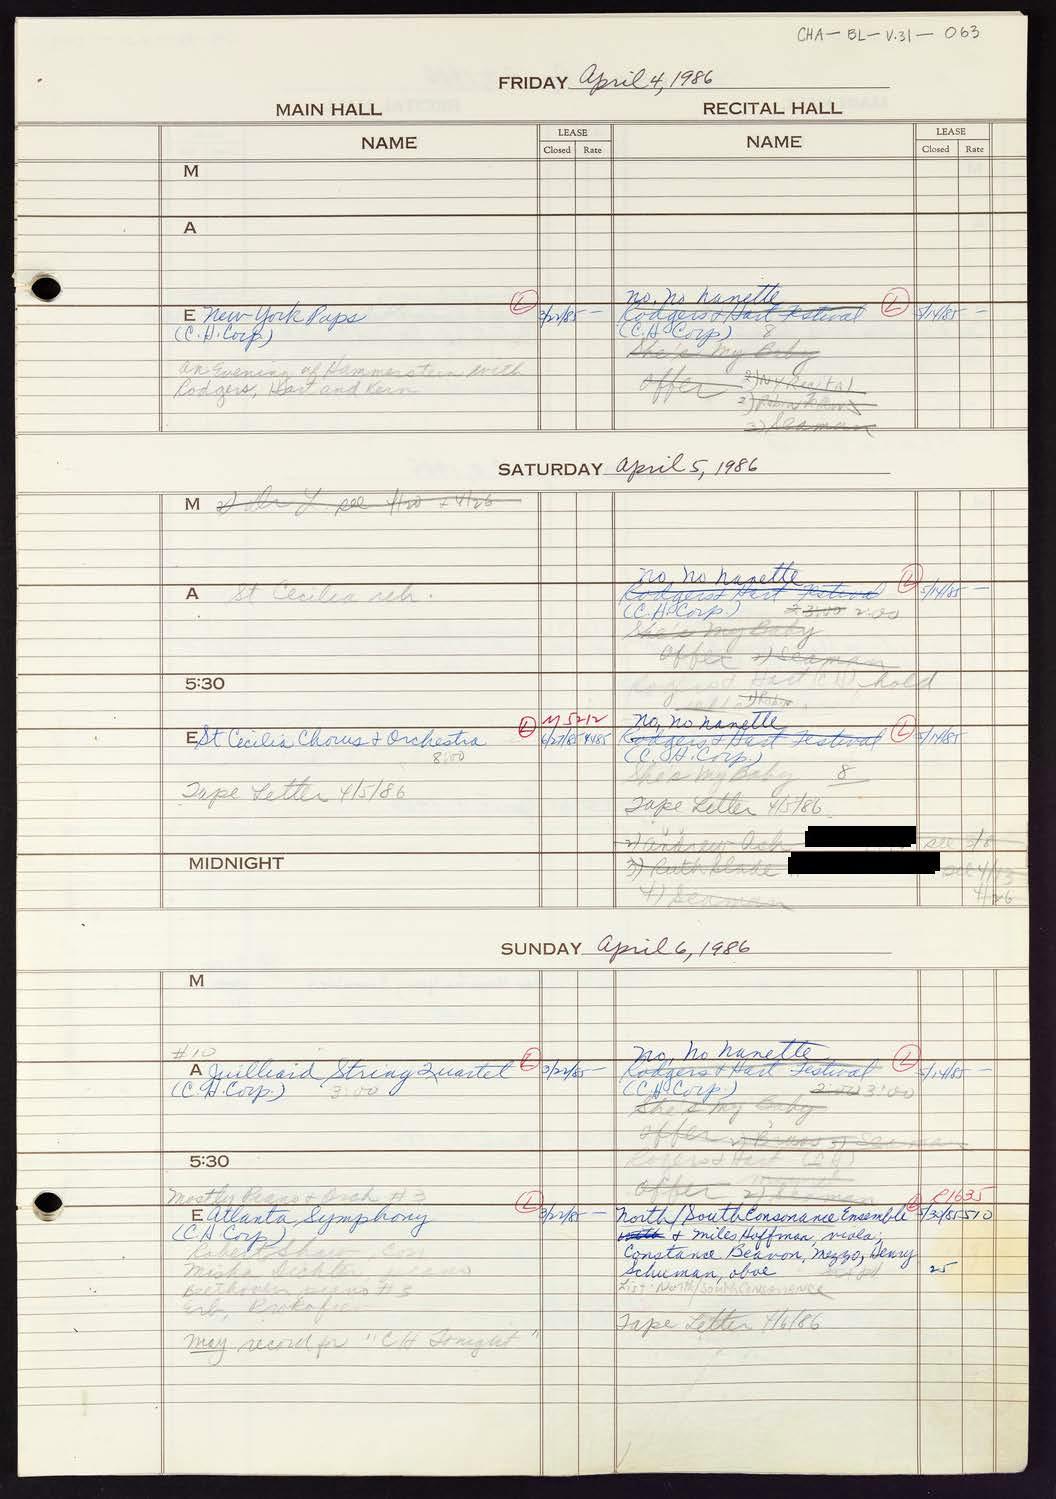 CHA-BL-V.31-063
FRIDAY April 4, 1986
MAIN HALL
RECITAL HALL
NAME
LEASE
Closed Rate
NAME
LEASE
Closed Rate
M
A
E New York Pops
(C.H. Corp)
L
3/22/85 —
An Evening of Hammerstein with
Rodgers, Hart and Kern
No, No Nanette
Rodgers & Hart Festival
(C.H. Corp) 8
L
5/14/85 —
She's My Baby
offer 2) NY Recital
3) Seaman
SATURDAY April 5, 1986
M 2) Dr L. see 4/20 + 4/26
A St Cecilia reh.
No, No Nanette
Rodgers & Hart Festival
(C.H. Corp.) 3:00 2:00
L
5/14/85 —
She's My Baby
offer 2) Seaman
5:30
Rogers & Hart (CH) hold
M 5212
E St Cecilia Chorus & Orchestra
8:00
L
6/27/85 4485
Tape Letter 4/5/86
No, No Nanette
Rodgers & Hart Festival
(C.H. Corp.)
L
5/14/85
She's My Baby 8
Tape Letter 4/5/86
2) Andrew Ash see 3/8
MIDNIGHT
3) Ruth Slade see 4/13
4/26
4) Seaman
SUNDAY April 6, 1986
M
#10
A Juilliard String Quartet
(C.H. Corp.) 3:00
L
3/22/85 —
No, No Nanette
Rodgers & Hart Festival
(C.H. Corp.) 2:00 3:00
L
5/14/85 —
She's My Baby
offer 2) Seaman
5:30
Rogers & Hart (CH)
offer 2) Seaman
Mostly Piano & Orch #3
E Atlanta Symphony
(C.H. Corp)
L
3/22/85 —
Robert Shaw, Con
Misha Dichter, piano
Beethoven piano #3
Erb, Prokofiev
May record for "CH Tonight"
R1635
North/South Consonance Ensemble
L
5/30/85 510
& Miles Hoffman, viola;
Constance Beavon, Mezzo, Henry
Schuman, oboe
25
List: North/South Consonance
Tape Letter 4/6/86